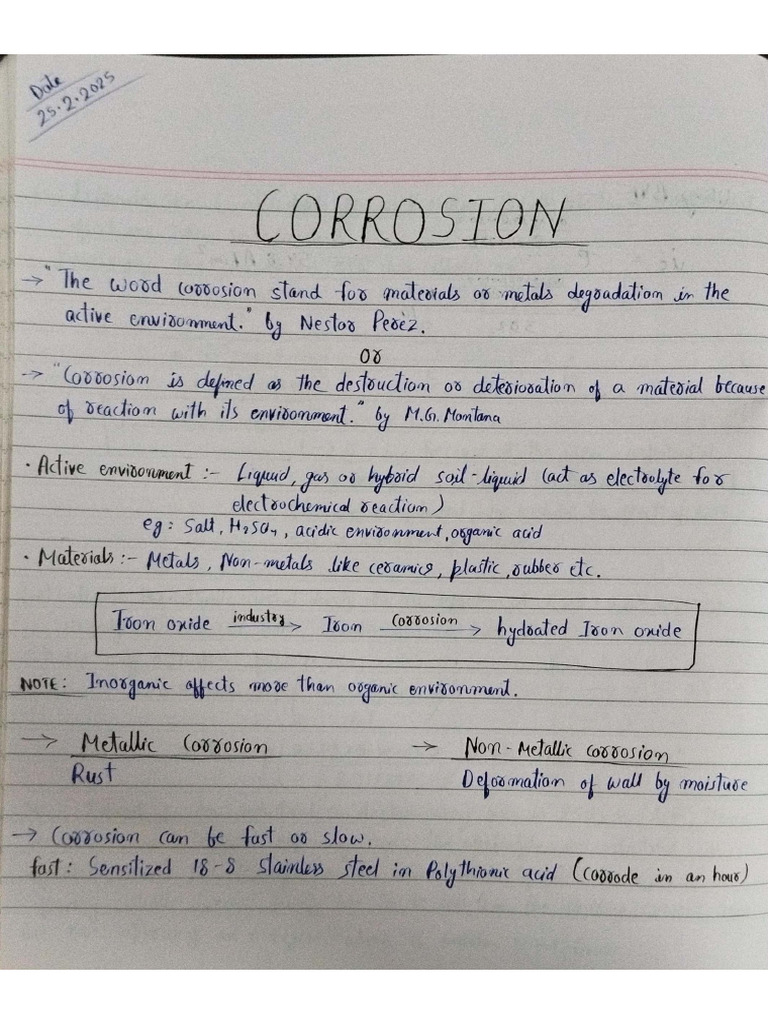 Date
25.2.2025
CORROSION
→ "The word corrosion stand for materials or metals degradation in the
active environment." by Nestor Perèz.
or
→ "Corrosion is defined as the destruction or deterioration of a material because
of reaction with its environment." by M.G. Montana
· Active environment :- Liquid, gas or hybrid soil-liquid (act as electrolyte for
electrochemical reaction)
eg: Salt, H₂SO₄, acidic environment, organic acid
· Materials :- Metals, Non-metals like ceramics, plastic, rubber etc.
Iron oxide industry → Iron Corrosion → hydrated Iron oxide
NOTE: Inorganic affects more than organic environment.
→ Metallic Corrosion → Non-Metallic corrosion
Rust Deformation of wall by moisture
→ Corrosion can be fast or slow.
fast: Sensitized 18-8 stainless steel in Polythionic acid (corrode in an hour)